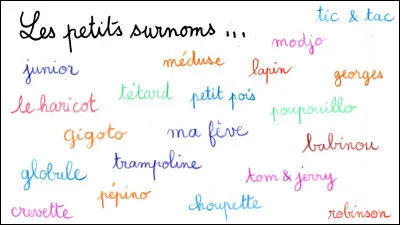 Les petits surnoms ...
tic & tac
modjo
junior
méduse
lapin
georges
le haricot
tétard
petit pois
poupouillo
gigoto
ma fève
babinou
globule
trampoline
tom & jerry
pépino
choupette
crevette
robinson